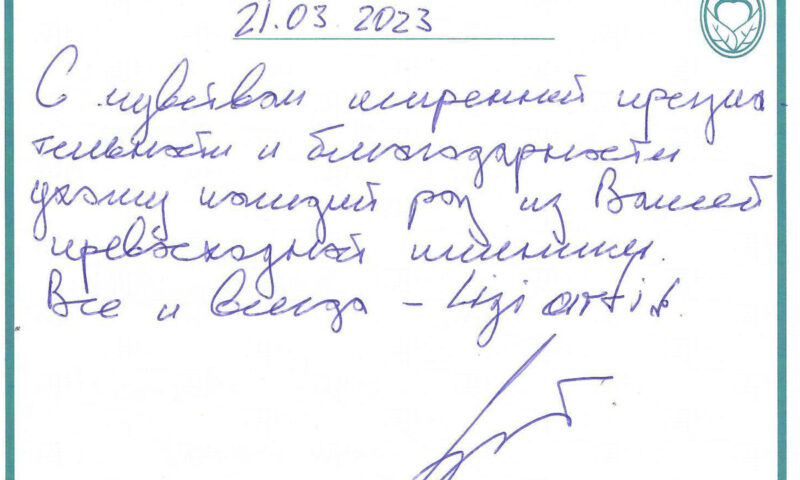 21.03 2023
С чувством искренней призна
тельности и благодарности
ухожу каждый раз из Вашей
превосходной клиники.
Все и всегда – Lege artis.